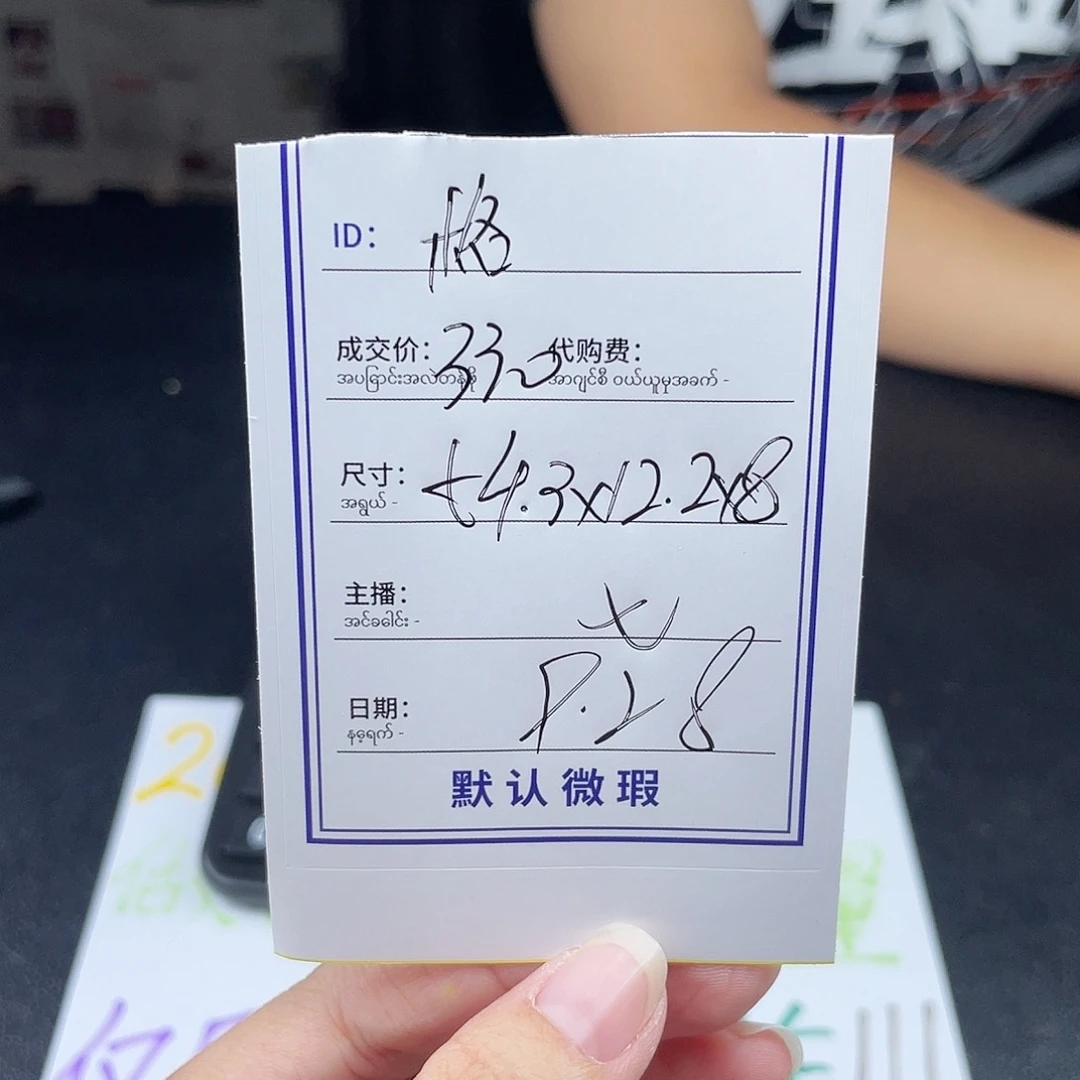 ID: 格
成交价: 330 代购费:
အပြောင်းအလဲတန်ဖိုး အာဂျင်စီ ဝယ်ယူမှုအခက် -
尺寸: 54.3x12.2x8
အရွယ် -
主播: 七
အင်ခေါင်း -
日期: 9.28
နေ့ရက် -
默认微瑕